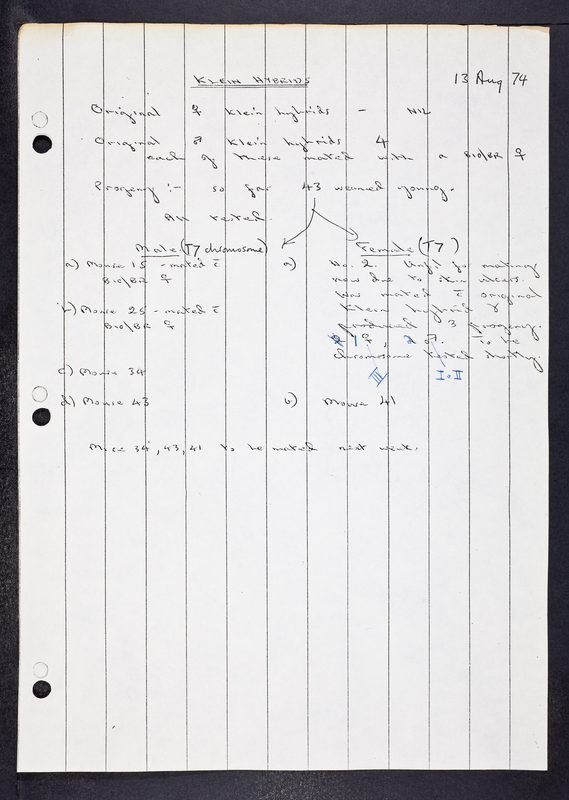 KLEIN HYBRIDS
13 Aug 74
Original ♀ Klein hybrids - NIL
Original ♂ Klein hybrids 4
each of these mated with a B10/BR ♀
Progeny :- so far 43 weaned young.
All tested.
Male (T7 chromosome)
a) Mouse 15 - mated c̄
B10/BR ♀
b) Mouse 25 - mated c̄
B10/BR ♀
c) Mouse 34
d) Mouse 43
Female (T7)
a) No. 2 Unfit for mating
now due to skin ulcers.
Was mated c̄ original
Klein hybrid &
produced 3 progeny.
1 ♀, 2 ♂. To be
chromosome tested shortly.
III
I + II
b) Mouse 41
Mice 34, 43, 41 to be mated next week.